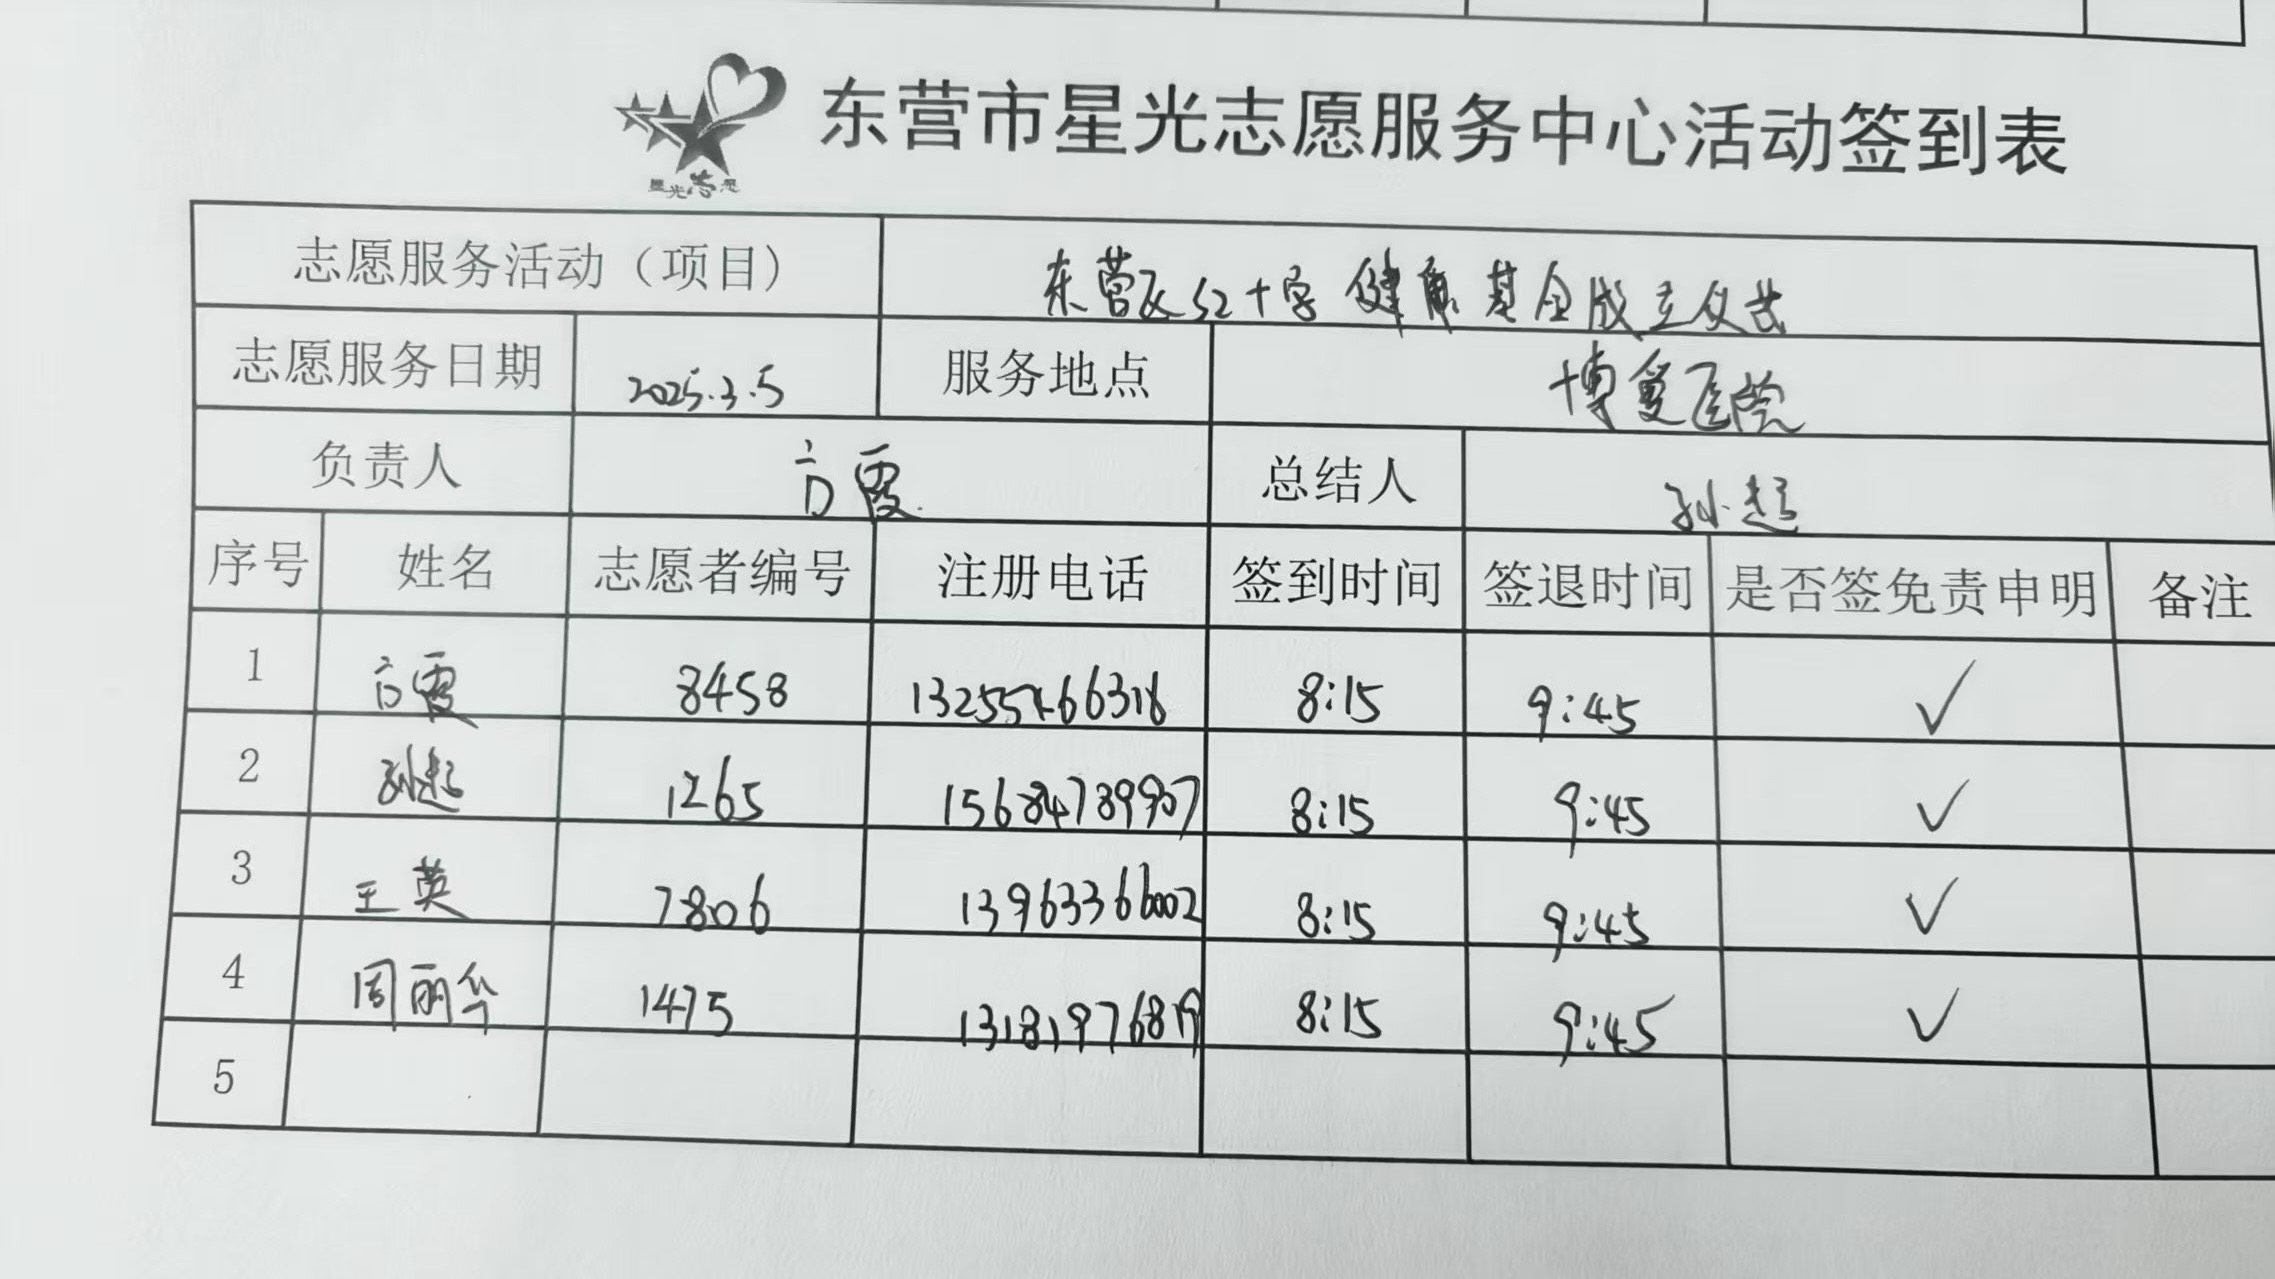 星光志愿
东营市星光志愿服务中心活动签到表
志愿服务活动（项目） 东营区红十字健康基金成立仪式
志愿服务日期 2025.3.5 服务地点 博爱医院
负责人 高霞 总结人 孙超
序号 姓名 志愿者编号 注册电话 签到时间 签退时间 是否签免责申明 备注
1 高霞 8458 8:15 9:45 ✓
2 孙超 1265 15684789907 8:15 9:45 ✓
3 王英 7806 13963366002 8:15 9:45 ✓
4 周丽华 1475 13181976819 8:15 9:45 ✓
5